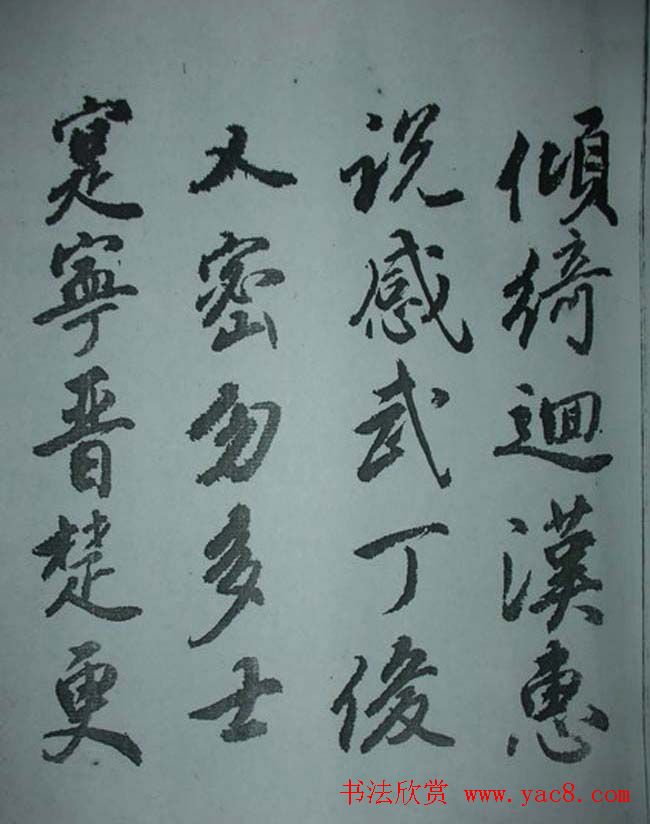 傾綺迴漢惠
说感武丁俊
乂密勿多士
寔寧晋楚更
书法欣赏 www.yac8.com